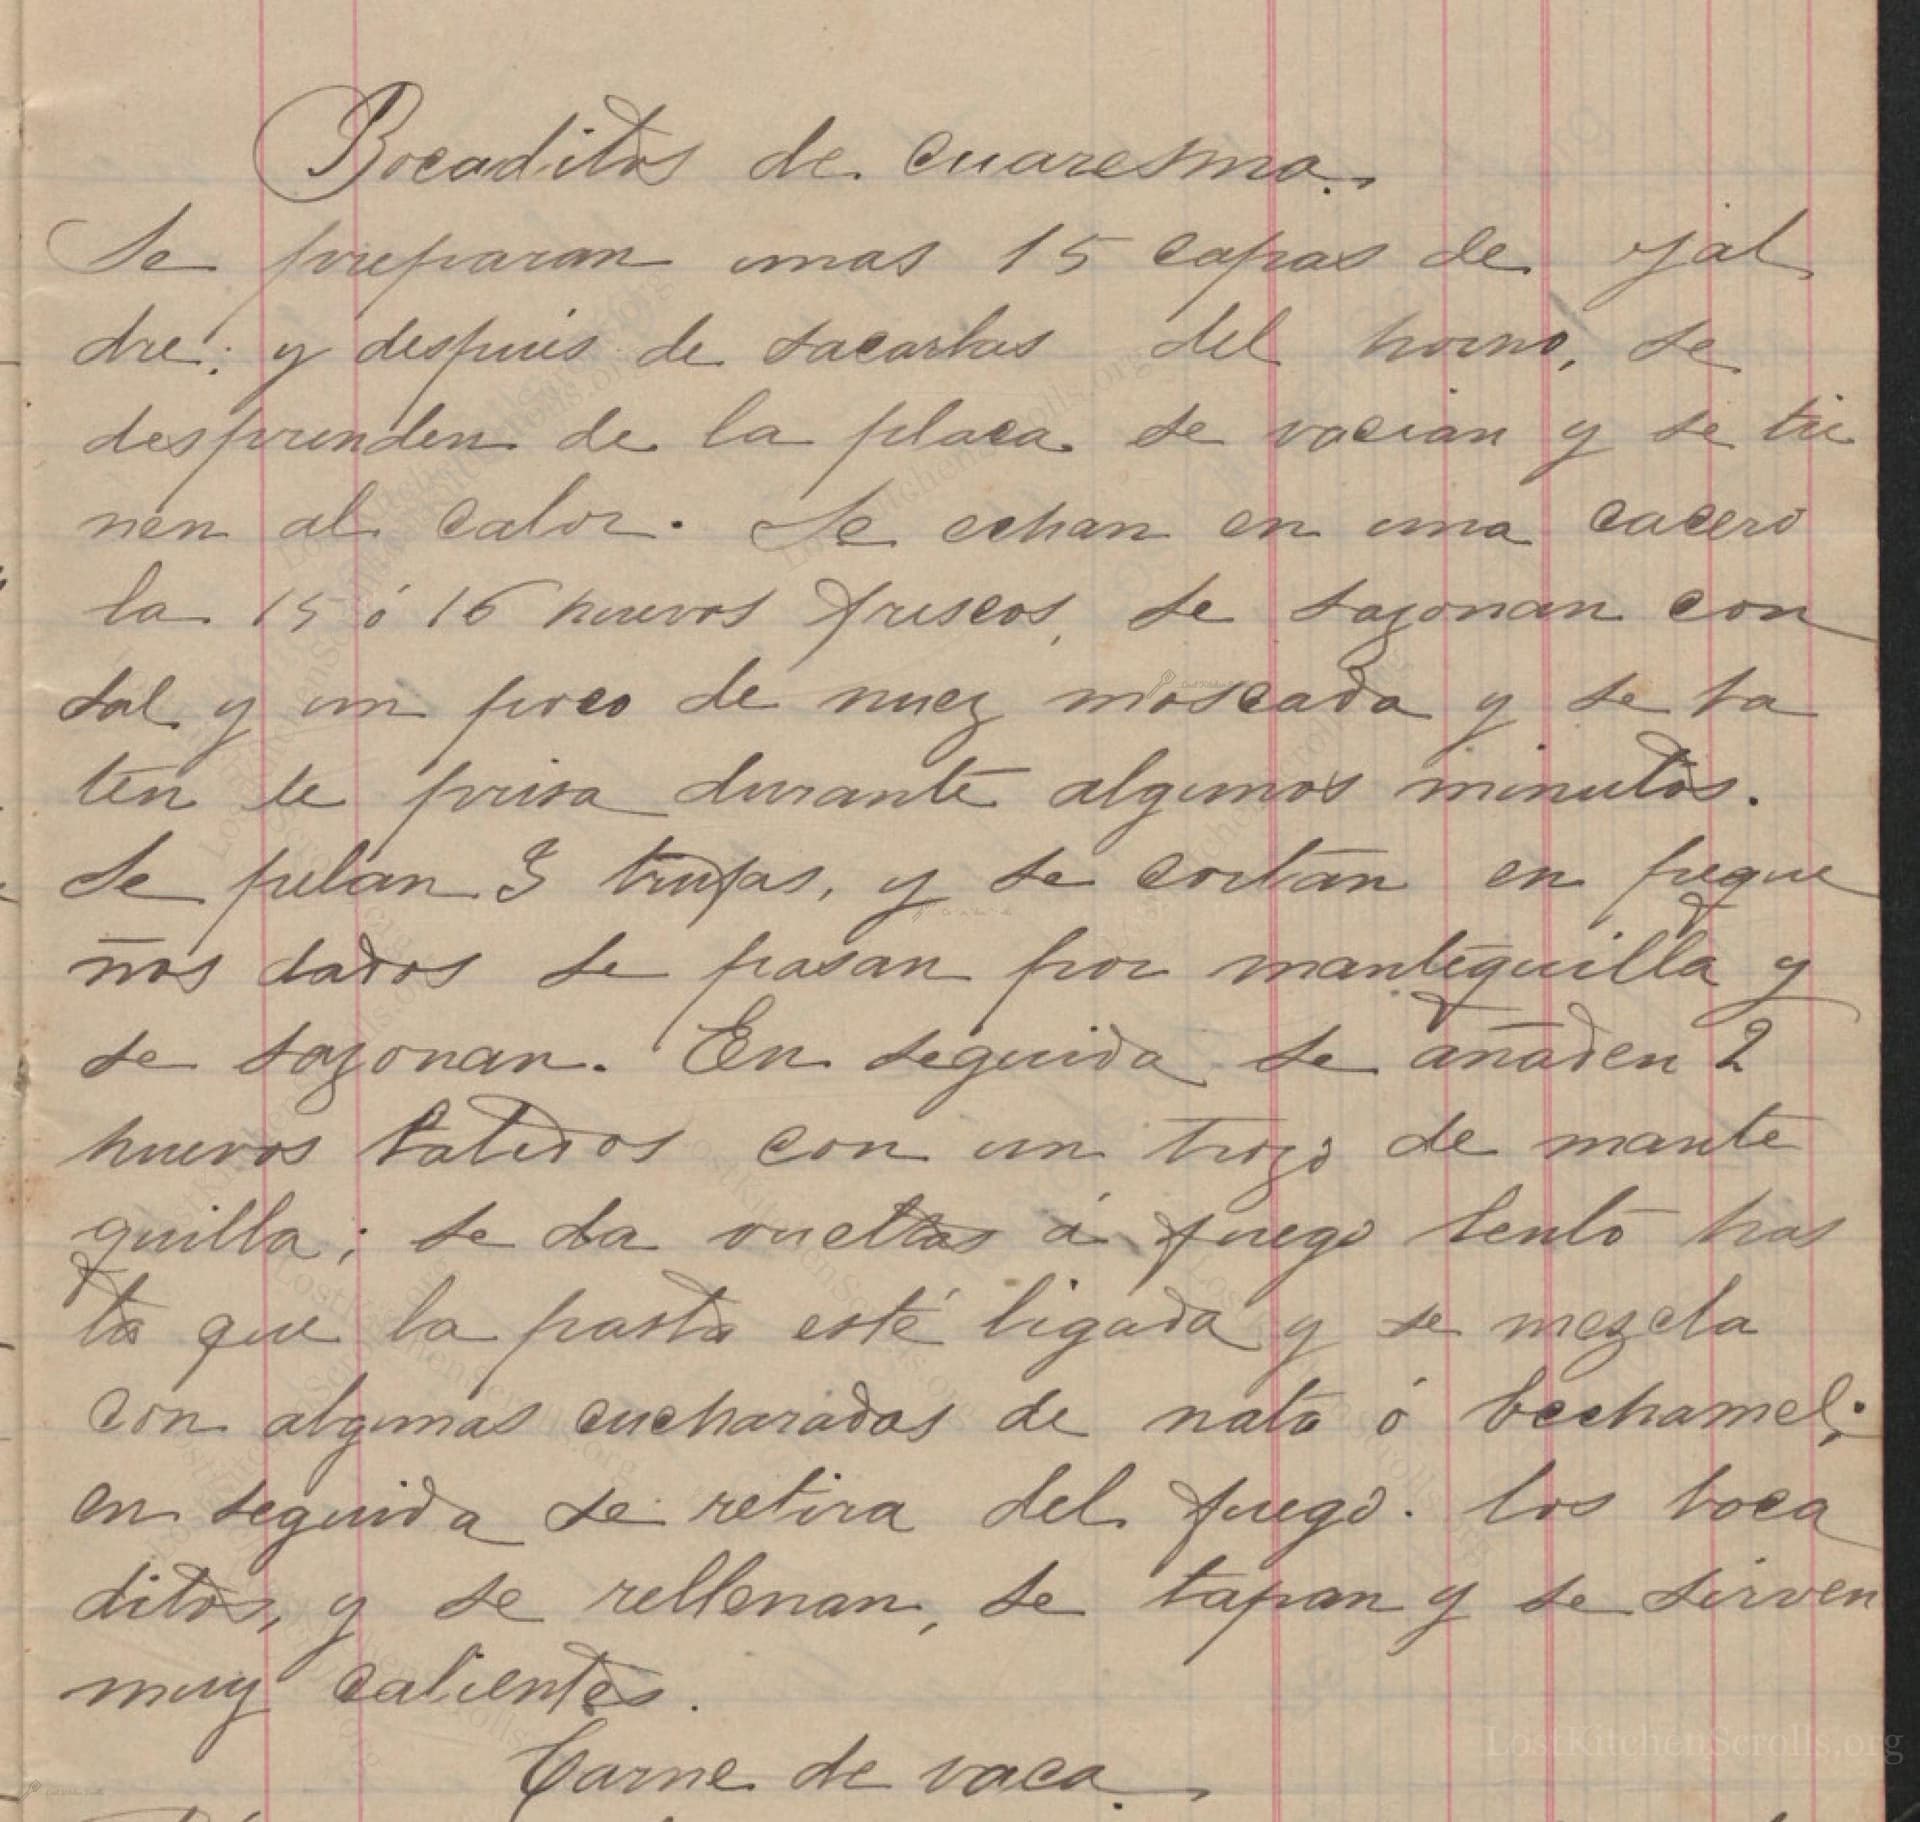 Bocaditos de cuaresma.
Se preparan unas 15 capas de ojal
dre; y despues de sacarlas del horno, se
desprenden de la placa se vacian y se tie
nen al calor. Se echan en una cacero
la 15 ó 16 huevos frescos, se sazonan con
sal y un poco de nuez moscada y se ba
ten de prisa durante algunos minutos.
Se pelan 3 trufas, y se cortan en peque
ños dados se pasan por mantequilla y
se sazonan. En seguida se añaden 2
huevos batidos con un trozo de mante
quilla; se da vueltas á fuego lento has
ta que la pasta esté ligada y se mezcla
con algunas cucharadas de nata ó bechamel;
en seguida se retira del fuego. los boca
ditos, y se rellenan, se tapan y se sirven
muy calientes.
Carne de vaca.
LostKitchenScrolls.org